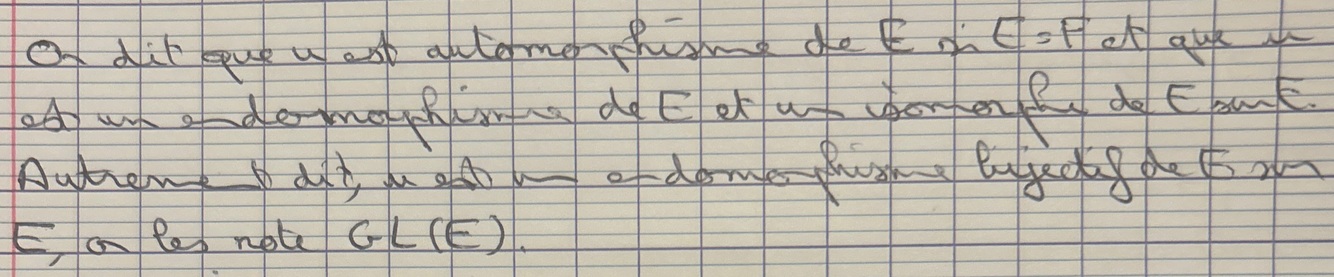 On dit que u est automorphisme de E si E = F et que u
est un endomorphisme de E et un isomorphe de E sur E.
Autrement dit, u est un endomorphisme bijectif de E sur
E, on les note GL(E).